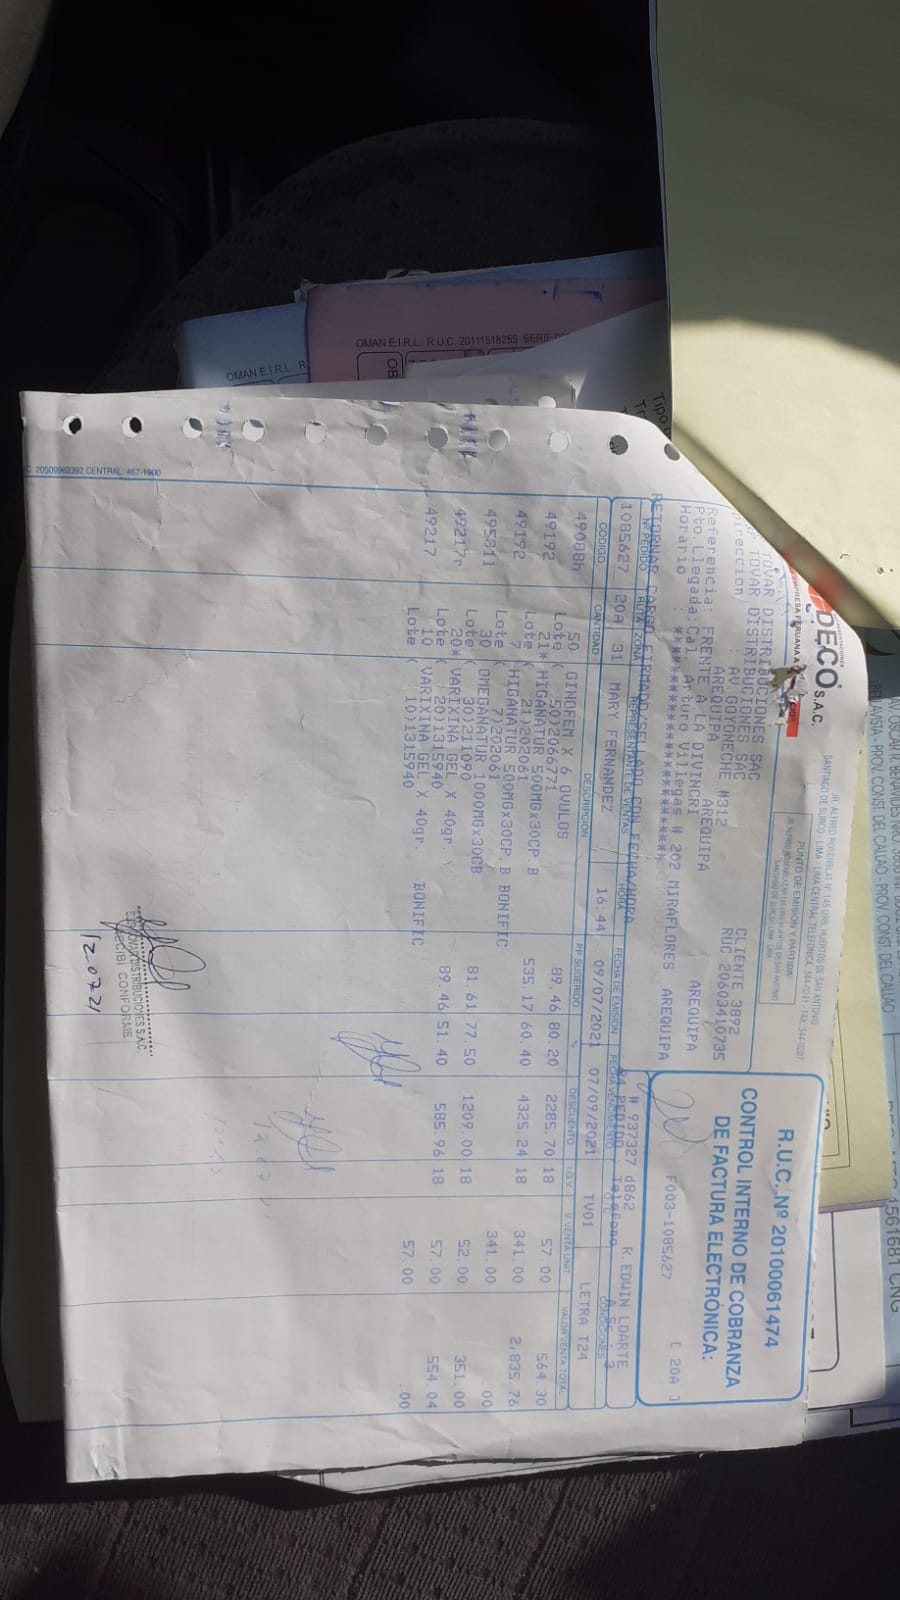 DECO S.A.C.
EMPRESA PERUANA
JR. ALFRED ROSENBLAT Nº 145 URB. HUERTOS DE SAN ANTONIO
SANTIAGO DE SURCO - LIMA - LIMA CENTRAL TELEFONICA 344-0241 - FAX. 344-0207
PUNTO DE EMISION Y PARTIDA
R.U.C. Nº 20100061474
CONTROL INTERNO DE COBRANZA
DE FACTURA ELECTRÓNICA:
F003-1085627 [ 20A ]
TOVAR DISTRIBUCIONES SAC CLIENTE 3892
TOVAR DISTRIBUCIONES SAC RUC 20603410735
Direccion : AV.GOYONECHE #312
AREQUIPA AREQUIPA AREQUIPA
Referencia: FRENTE A LA DIVINCRI
Pto.Llegada:Cal. Arturo Villegas # 202 MIRAFLORES AREQUIPA
Horario : ******************
RETORNAR CARGO FIRMADO/SELLADO CON FECHA/HORA
# 937327 d862 R.EDWIN LOARTE
PEDIDO : Telefono
Nº PEDIDO RUTA ZONA REPRESENTANTE DE VENTAS HORA FECHA DE EMISION FECHA VENCIMIENTO O/C CONDICIONES
1085627 20A 31 MARY FERNANDEZ 16:44 09/07/2021 07/09/2021 TV01 LETRA T24
CODIGO CANTIDAD DESCRIPCION PP SUGERIDO % DESCUENTO I.G.V. V.VENTA UNIT. VALOR VENTA TOTAL
49088h 50 GINOFEM X 6 OVULOS 89.46 80.20 2285.70 18 57.00 564.30
Lote ( 50)2066771
49192 21* HIGANATUR 500MGx30CP.B 535.17 60.40 4325.24 18 341.00 2,835.76
Lote ( 21)202061
49192 7 HIGANATUR 500MGx30CP.B BONIFIC 341.00 .00
Lote ( 7)202061
30 OMEGANATUR 1000MGx30CB 81.61 77.50 1209.00 18 52.00 351.00
Lote ( 30)211090
49217r 20* VARIXINA GEL X 40gr. 89.46 51.40 585.96 18 57.00 554.04
Lote ( 20)1315940
49217 10 VARIXINA GEL X 40gr. BONIFIC 57.00 .00
Lote ( 10)1315940
DISTRIBUCIONES S.A.C.
RECIBI CONFORME
120721
C. 20509962392 CENTRAL: 467-1900
OMAN E.I.R.L. R.U.C. 20111518255 SERIE
OMAN E.I.R.L. R
OB
Tipo
AV. OSCAR R. BENAVIDES
BELLAVISTA - PROV. CONST. DEL CALLAO - PROV. CONST. DEL CALLAO
1561681 CNG